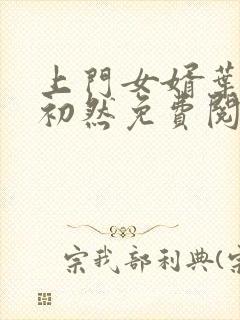 上門女婿葉
初然免費閱
宗我部利典(宗